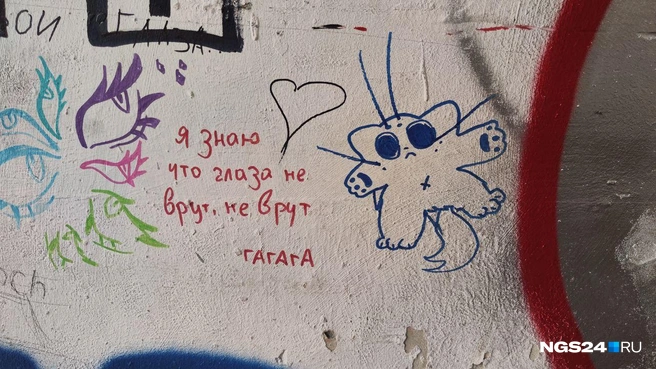 ГЛАЗА
я знаю
что глаза не
врут, не врут
гАГАГА
NGS24.RU